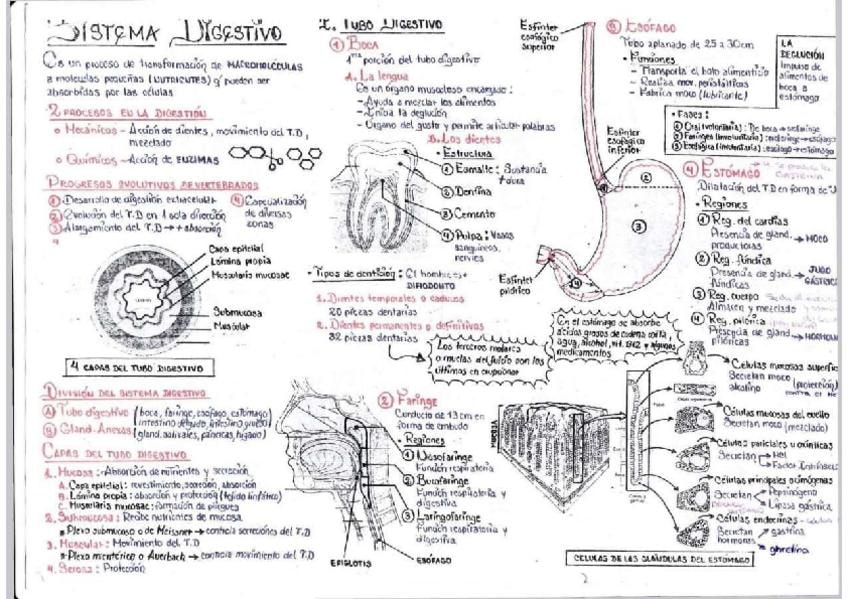 SISTEMA DIGESTIVO
Es un proceso de transformación de MACROMOLÉCULAS
a moléculas pequeñas (NUTRIENTES) q' pueden ser
absorbidas por las células
2 PROCESOS EN LA DIGESTIÓN
Mecánicos - Acción de dientes, movimiento del T.D,
mezclado
Químicos - Acción de ENZIMAS
PROGRESOS EVOLUTIVOS DE VERTEBRADOS
① Desarrollo de digestión extracelular
② Evolución del T.D en 1 sola dirección
③ Alargamiento del T.D → + absorción
④ Especialización
de diversas
zonas
Capa epitelial
Lámina propia
Muscularis mucosae
Submucosa
Muscular
4 CAPAS DEL TUBO DIGESTIVO
DIVISIÓN DEL SISTEMA DIGESTIVO
Ⓐ Tubo digestivo (boca, faringe, esófago, estómago
intestino delgado, intestino grueso)
Ⓑ Gland. Anexas (gland. salivales, páncreas, hígado)
CAPAS DEL TUBO DIGESTIVO
1. Mucosa: Absorción de nutrientes y secreción
A. Capa epitelial: revestimiento, secreción, absorción
B. Lámina propia: absorción y protección (tejido linfático)
C. Muscularis mucosae: formación de pliegues
2. Submucosa: Recibe nutrientes de mucosa
Plexo submucoso o de Meissner → controla secreciones del T.D
3. Muscular: Movimiento del T.D
Plexo mientérico o Auerbach → controla movimiento del T.D
4. Serosa: Protección
I. TUBO DIGESTIVO
① BOCA
1era porción del tubo digestivo
A. La lengua
Es un órgano musculoso encargado:
- Ayuda a mezclar los alimentos
- Inicia la deglución
- Órgano del gusto y permite articular palabras
B. Los dientes
• Estructura
① Esmalte: Sustancia
+ dura
② Dentina
③ Cemento
④ Pulpa: Vasos
sanguíneos,
nervios
• Tipos de dentición: El hombre es +
DIFIODONTO
1. Dientes temporales o caducos
20 piezas dentarias
2. Dientes permanentes o definitivos
32 piezas dentarias
Los terceros molares
o muelas del juicio son los
últimos en erupcionar
② FARINGE
Conducto de 13 cm en
forma de embudo
• Regiones
① Nasofaringe
Función respiratoria
② Bucofaringe
Función respiratoria y
digestiva
③ Laringofaringe
Función respiratoria y
digestiva
EPIGLOTIS
ESÓFAGO
Esfínter
esofágico
superior
Esfínter
esofágico
inferior
Esfínter
pilórico
①
②
③
④
En el estómago se absorbe
ácidos grasos de cadena corta,
agua, alcohol, vit. B12 y algunos
medicamentos
③ ESÓFAGO
Tubo aplanado de 25 a 30cm
• Funciones
- Transporta el bolo alimenticio
- Realiza mov. peristálticos
- Fabrica moco (lubricante)
LA
DEGLUCIÓN
Impulso de
alimentos de
boca a
estómago
• Fases:
① Oral (voluntaria): De boca → orofaringe
② Faríngea (involuntaria): orofaringe → esófago
③ Esofágica (involuntaria): esófago → estómago
④ ESTÓMAGO
Dilatación del T.D en forma de "J"
• Regiones
① Reg. del cardias
Presencia de gland. → MOCO
productoras
② Reg. fúndica
Presencia de gland. → JUGO
GÁSTRICO
fúndicas
③ Reg. cuerpo
Almacen y mezclado
④ Reg. pilórica
Presencia de gland.
pilóricas
MUCOSA
Células mucosas superfic
Secretan moco (protección)
alcalino
Células mucosas del cuello
Secretan moco (mezclado)
Células parietales u oxínticas
Secretan → HCl
→ Factor intrínseco
Células principales o zimógenas
Secretan → Pepsinógeno
→ Lipasa gástrica
Células endocrinas
Secretan → gastrina
hormonas → ghrelina
CÉLULAS DE LAS GLÁNDULAS DEL ESTÓMAGO
2